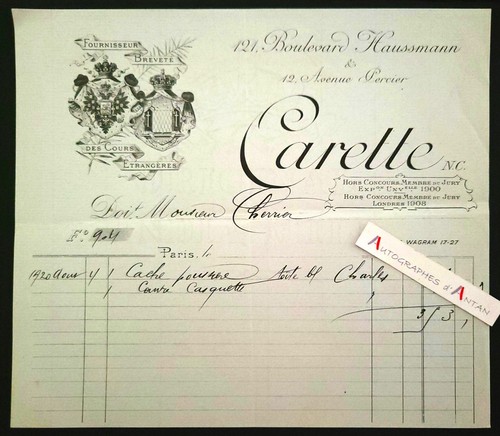 FOURNISSEUR
BREVETÉ
DES COURS
ETRANGÈRES
121, Boulevard Haussmann
&
12, Avenue Percier
Carette N.C.
HORS CONCOURS, MEMBRE DU JURY
EXPON UNVELLE 1900
HORS CONCOURS, MEMBRE DU JURY
LONDRES 1908
Doit Monsieur Cherrier
Fo 904
WAGRAM 17-27
Paris, le
AUTOGRAPHES d'ANTAN
1920 4 1 Cache poussière Charles
1 Casquette 1
3 3
1